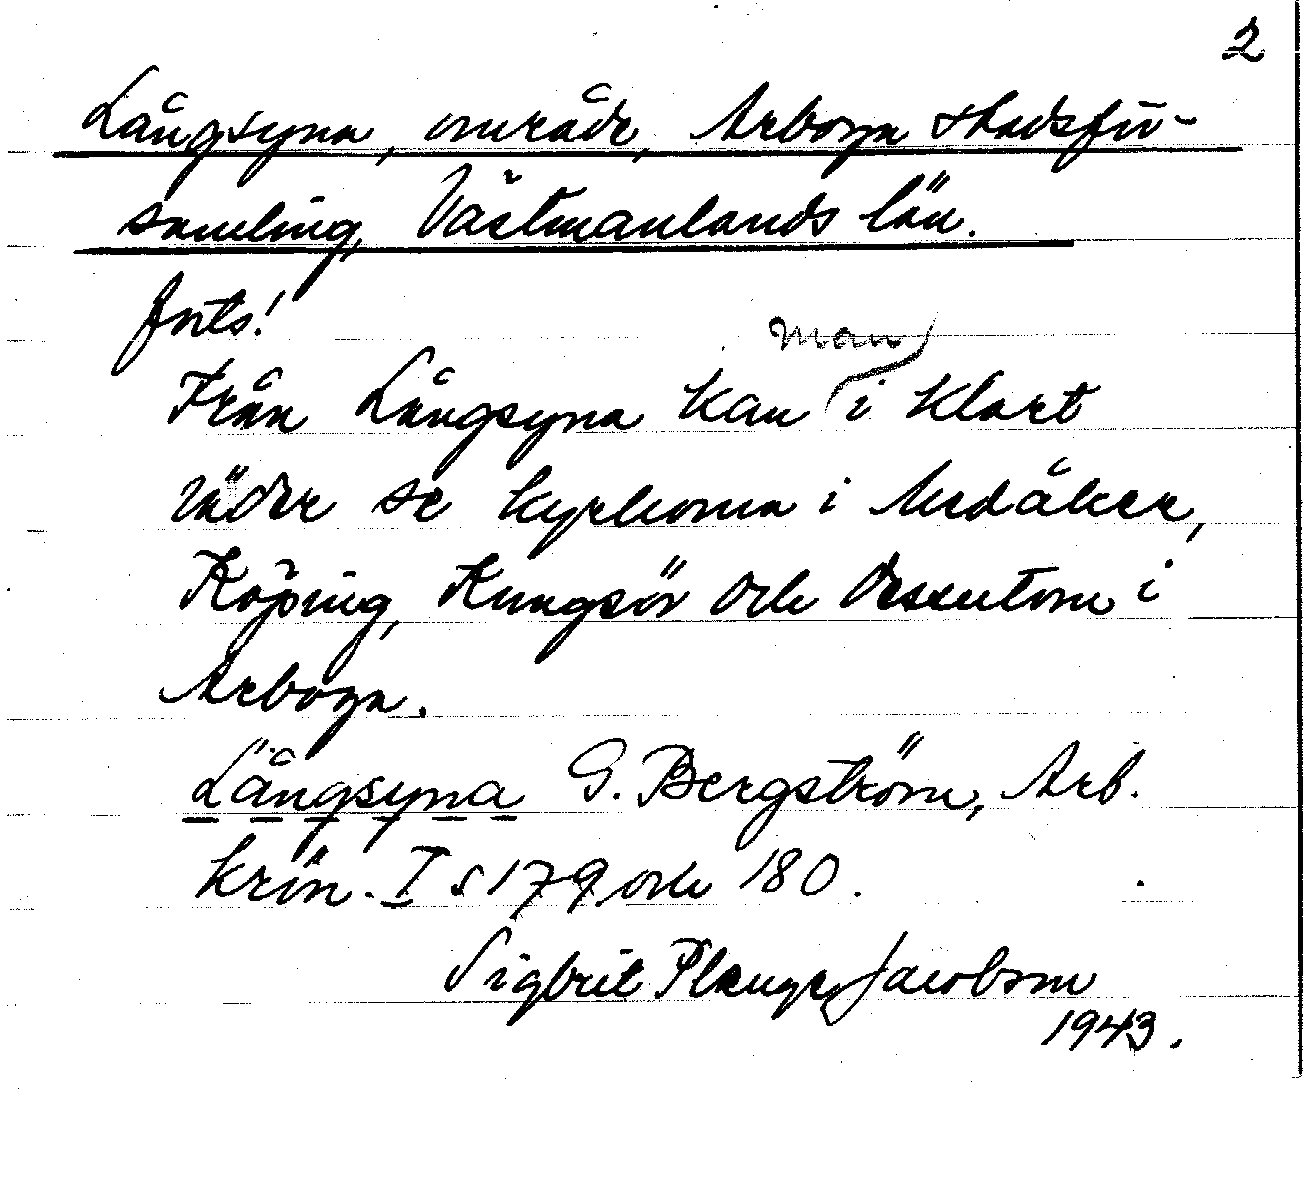 2
Långsyna, område, Arboga stadsför-
samling, Västmanlands län.
forts!
Från Långsyna kan man i klart
väder se kyrkorna i Medåker,
Köping, Kungsör och dessutom i
Arboga.
Långsyna G. Bergström, Arb.
krön. I s 179 och 180.
Sigbrit Plænge Jacobson
1943.